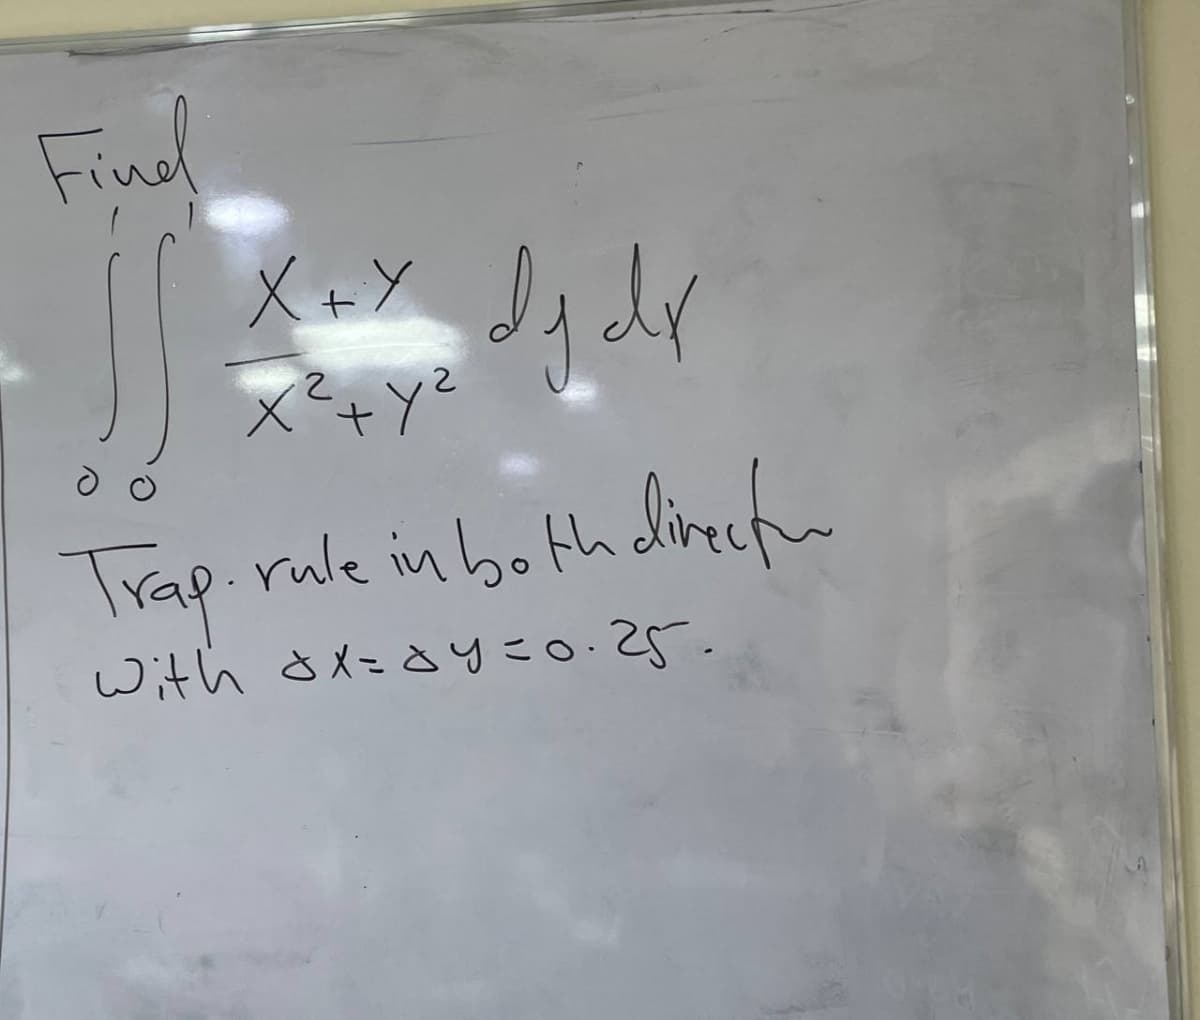 Find
∫₀¹ ∫₀¹ (x+y)/(x²+y²) dy dx
Trap. rule in both direction
with Δx=Δy=0.25.